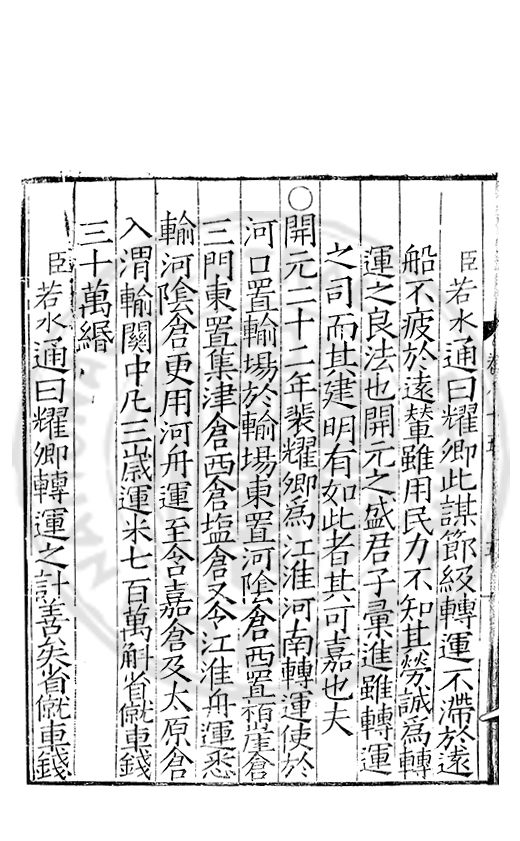 臣若水通曰耀卿此謀節級轉運不滯於遠
船不疲於遠輦雖用民力不知其勞誠為轉
運之良法也開元之盛君子彚進雖轉運
之司而其建明有如此者其可嘉也夫
○開元二十二年裴耀卿為江淮河南轉運使於
河口置輸場於輸場東置河隂倉西置栢崖倉
三門東置集津倉西倉塩倉又令江淮舟運悉
輸河隂倉更用河舟運至含嘉倉及太原倉
入渭輸關中凡三歳運米七百萬斛省僦車錢
三十萬緡
臣若水通曰耀卿轉運之計善矣省僦車錢